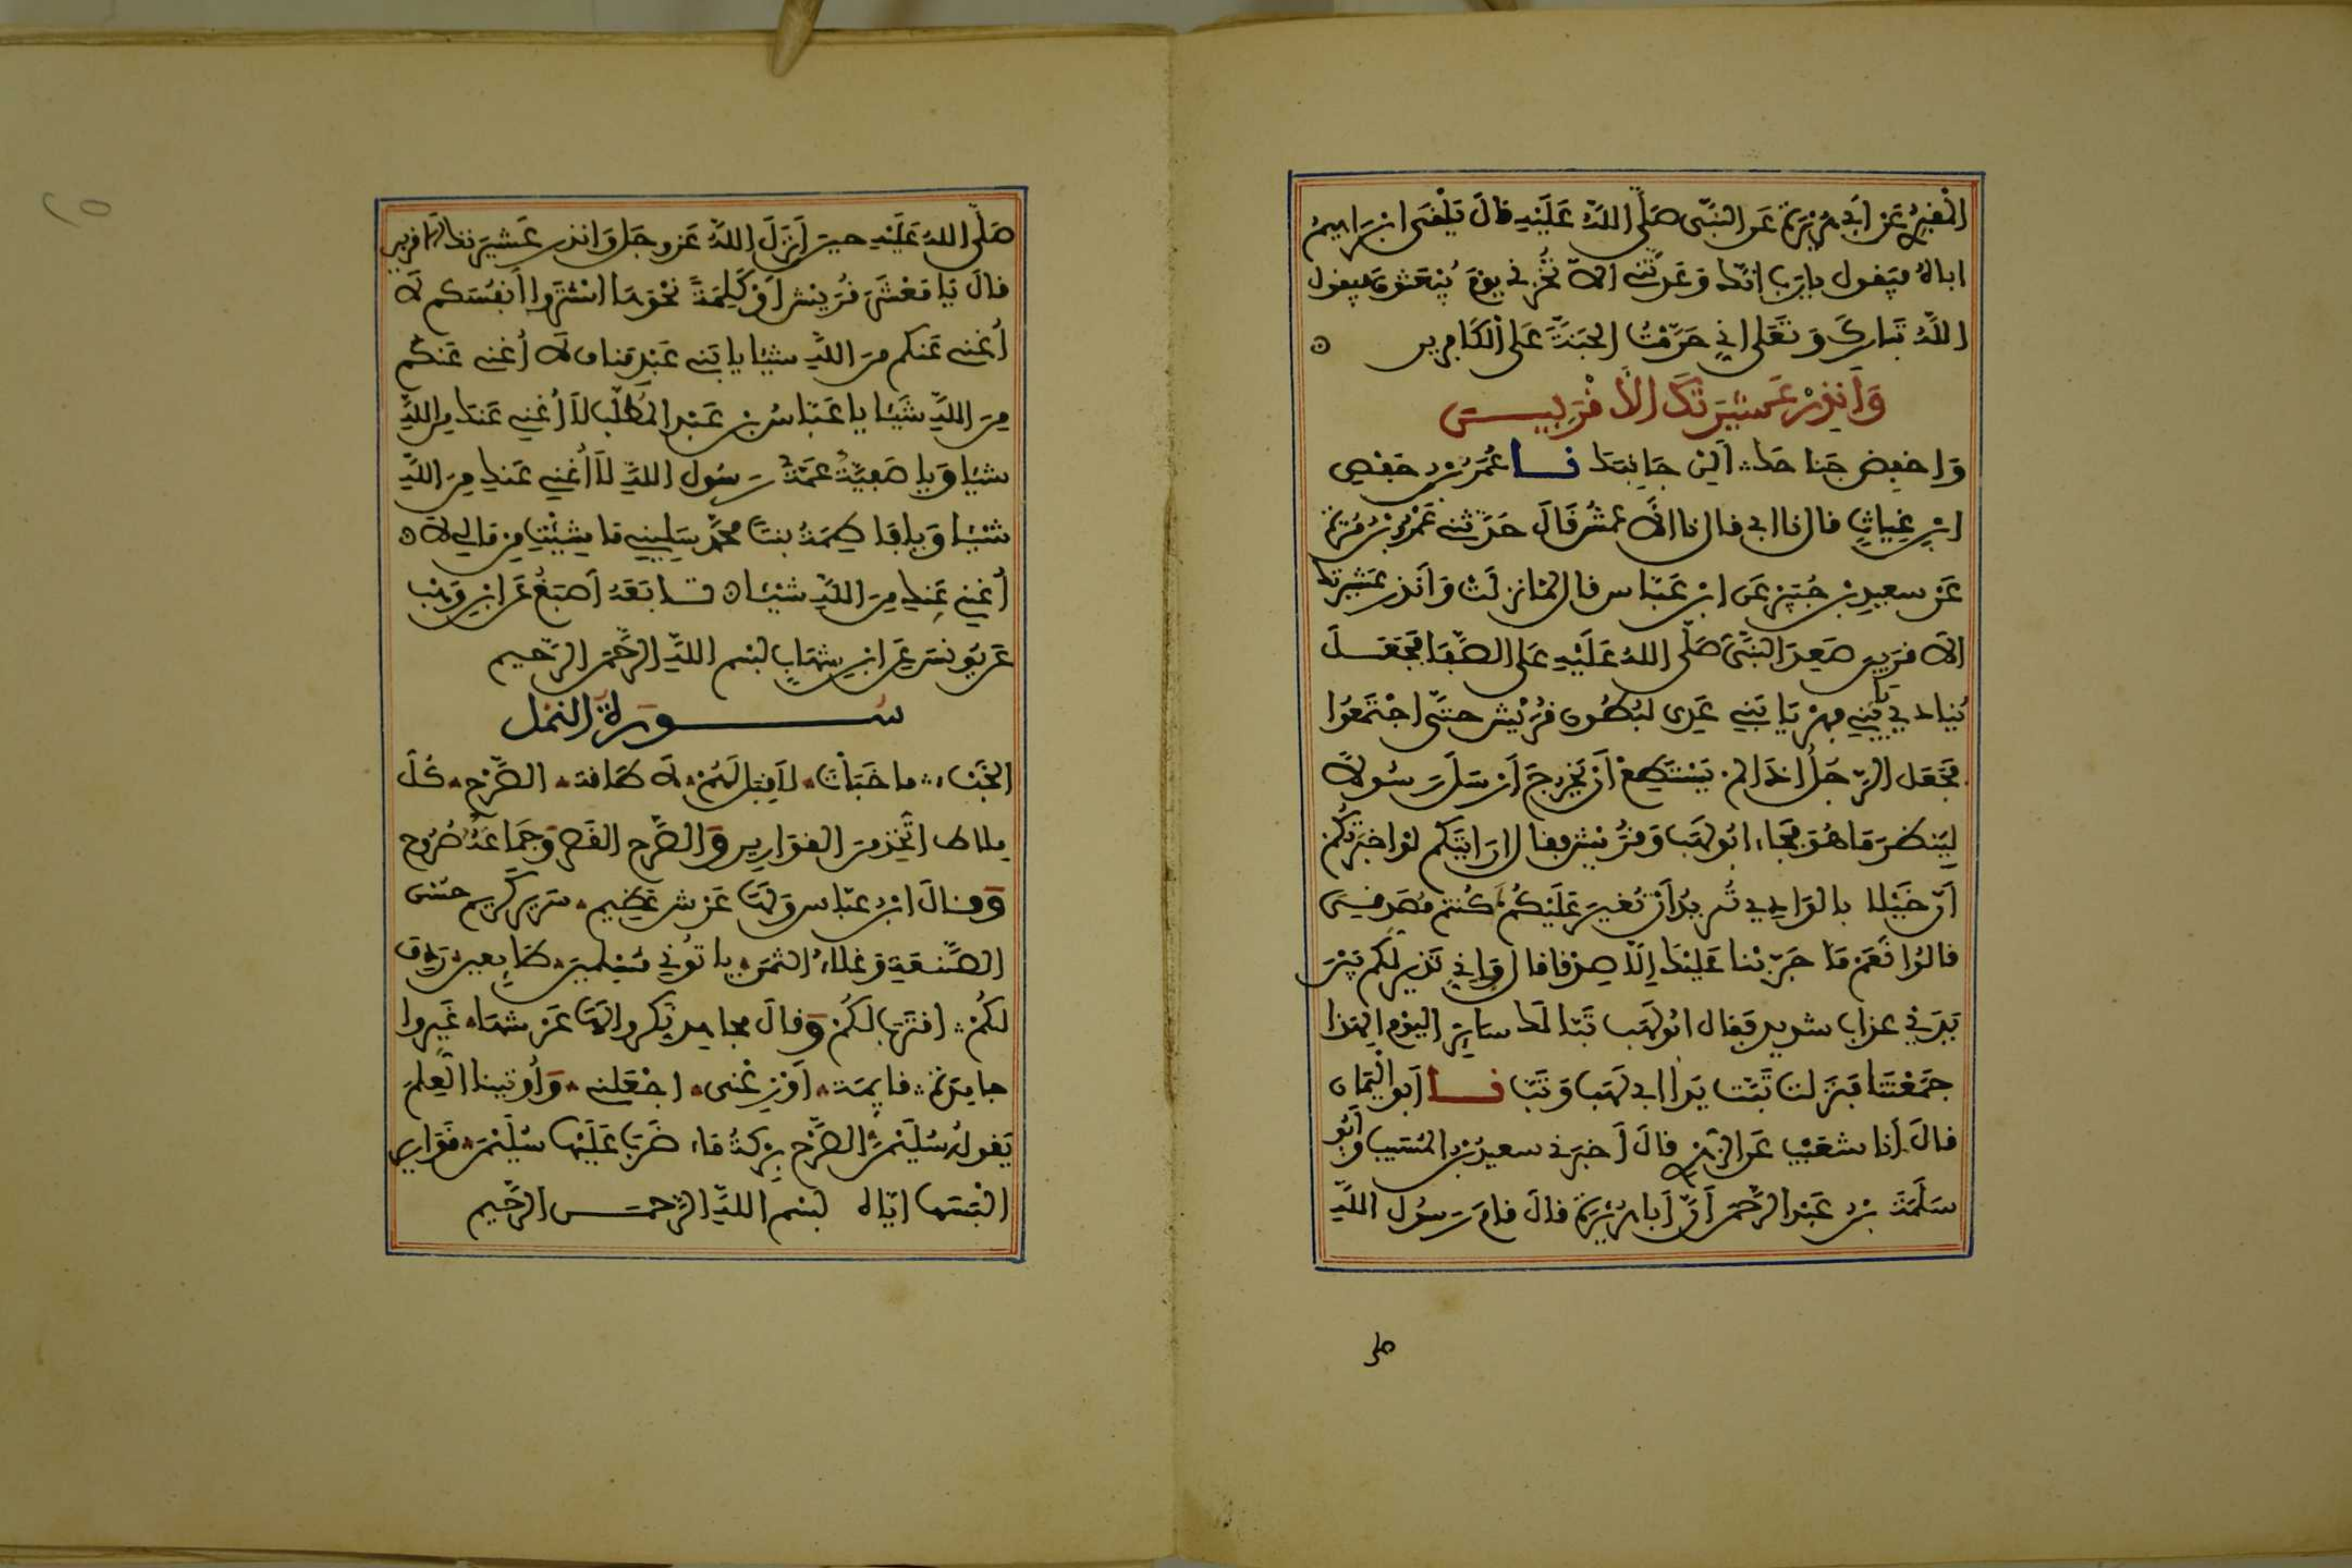 المقبري عن ابي هريرة عن النبي صلى الله عليه قال يلقى ابراهيم
اباه فيقول يارب انك وعدتني الا تخزني يوم يبعثون فيقول
الله تبارك وتعلى اني حرمت الجنة على الكافرين
وَأنذِرْ عَشيرَتَكَ الأَقْرَبِيـــن
وَاخفِض جَناحك ألِنْ جَانِبَكَ نا عُمَرُ بْنُ حَفْصِ
ابْنِ غِياثٍ قال نا ابي قال نا الأعمشُ قَالَ حَدَّثني عَمْرُو بْنُ مُرَّةَ
عَن سعيدِ بْنِ جُبَيْرٍ عَن ابْنِ عَبَّاس قال لمّا نزلَتْ وَأنذر عَشيرتك
الأقربين صَعِدَ النَّبيُّ صَلَّى اللهُ عَلَيْهِ عَلى الصَّفَا فجَعَــلَ
يُنادي يَا بَنِي فِهْرٍ يَا بَنِي عَدِي لبُطُون قُرَيْشٍ حتَّى اجْتَمَعُوا
فَجَعَل الرّجُلُ اذَا لم يَسْتَطِعْ أنْ يَخْرجَ أَرْسَلَ رَسُولاً
لِيَنظُرَ مَا هُوَ فجَاءَ ابُو لَهَبٍ وَقُرَيْشٌ فقال ارَايتَكم لوْ اخبَرتُكُمْ
أنّ خَيْلا بالوَادِي تُريدُ أَنْ تُغيرَ عَلَيْكُم أكُنتم مُصَدّقِيَّ
قالُوا نَعَمْ مَا جَرّبْنا عَلَيْكَ إلَّا صِدْقا قال فإني نَذير لكم بَيْنَ
يَدَيْ عذاب شديد فَقال ابُو لهَب تَبّا لَك سايِرَ اليَوْم ألهذا
جَمَعْتَنا فَنَزلت تَبَّتْ يَدا ابي لَهَب وَتَبّ نــا أبو اليَمَان
قالَ أنا شعَيْب عَن الزُّهْريِّ قالَ أخبَرَني سعيدُ بْنُ المُسَيب وَأبُو
سَلَمَةَ بْنُ عَبْدِ الرَّحْمَن أنَّ أبَا هُرَيْرَةَ قالَ قامَ رَسُول اللَّهِ
صلى
صَلَّى اللهُ عَلَيْهِ حين أنزَلَ اللهُ عَزّ وجَل وَانذر عَشيرَتك الاقربين
قال يَا مَعْشَرَ قُرَيْشٍ أوْ كَلِمَةً نَحْوَهَا اشْتَرُوا أنفُسَكم لَا
أُغني عَنكم مِنَ اللَّهِ شيْئا يا بَني عَبْدِ مَناف لَا أُغني عَنكُم
مِنَ اللَّهِ شَيْئا يا عَبّاسُ بْنَ عَبْدِ المُطَّلِب لَا أُغني عَنكَ مِن اللَّهِ
شيْئا وَيا صَفِيَّةُ عَمَّةَ رَسُول اللَّهِ لَا أُغني عَنكِ مِنَ اللَّهِ
شَيْئا وَيا فَاطِمَةُ بنتَ مُحَمَّدٍ سَلِيني مَا شِيْتِ مِن مَالي لَا
أُغني عَنكِ مِنَ اللَّهِ شَيْئا تــابَعَهُ أَصْبَغُ عَن ابْنِ وَهْبٍ
عَن يُونسَ عَن ابْنِ شهَابٍ بسْم اللَّهِ الرَّحْمَن الرَّحيم
ســـورة النمْل
الخَبْءَ ما خَبَأتَ لا قِبَل لَهُمْ لا طَاقةَ الصَّرْح كُلّ
ملاط اتُّخِذ مِنَ القوَارير وَالصَّرح القَصر وَجَمَاعَتُهُ صُرُوح
وَقــالَ ابْنُ عبّاس وَلَهَا عَرْش عَظِيم سَرير كَريم حُسْنُ
الصَّنعَةِ وَغَلاءُ الثمَنِ يأتوُني مُسْلِمينَ طَايِعين رَدِفَ
لكُمْ اقتَرَبَ لَكُمْ وَقالَ مجاهد نكروا لهَا عَرْشهَا غَيروا
جامِدَةً قايمَة أوْزِعْني اجْعَلني وَأُوتينا العِلْمَ
يَقولُهُ سُلَيْمَنُ الصَّرْحُ بِرْكَةُ مَاءٍ ضَرَبَ عَلَيْهَا سُلَيْمَنُ قَوَارير
ألْبَسَهَا ايّاه بسْم اللَّهِ الرَّحمـن الرَّحِيم